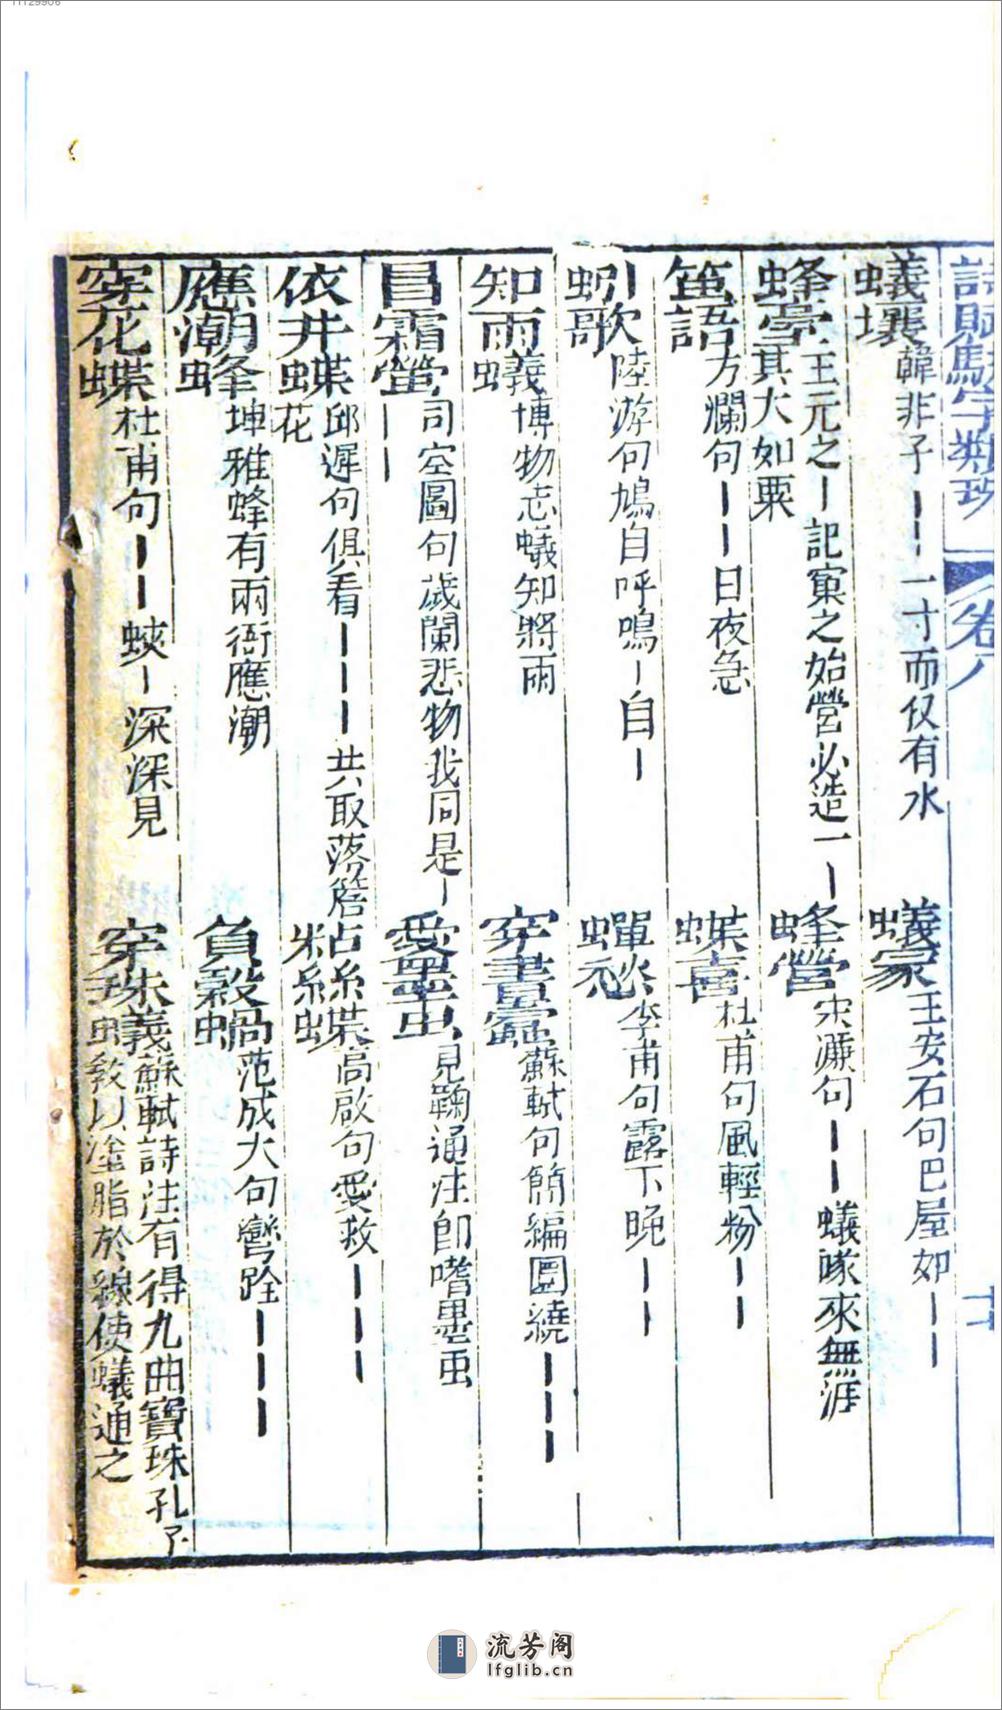 11129906
詩賦駢字類珠 卷八
蟻壤 韓非子｜｜一寸而仅有水
蟻冢 王安石句巴屋如｜｜
蜂臺 王元之｜記窠之始營必造一｜其大如粟
蜂營 宋濂句｜｜蟻隊來無涯
語 方瀾句｜｜日夜急
蝶喜 杜甫句風輕粉｜｜
蚓歌 陸游句鳩自呼鳴｜自｜
蟬愁 李甫句露下晚｜｜
知雨蟻 博物志蟻知將雨
穿書蠹 蘇軾句簡編圍繞｜｜｜
冒霜螢 司空圖句歲闌悲物我同是｜｜｜
愛墨虫 見鞠通注即嗜墨虫
依井蝶 邱遲句俱看｜｜｜共取落簷花
粘絲蝶 高啟句愛救｜｜｜
應潮蜂 坤雅蜂有兩衙應潮
負殼蝸 范成大句彎跧｜｜｜
穿花蝶 杜甫句｜｜蛺｜深深見
穿珠蟻 蘇軾詩注有得九曲寶珠孔子教以塗脂於線使蟻通之
流芳阁
lfglib.cn